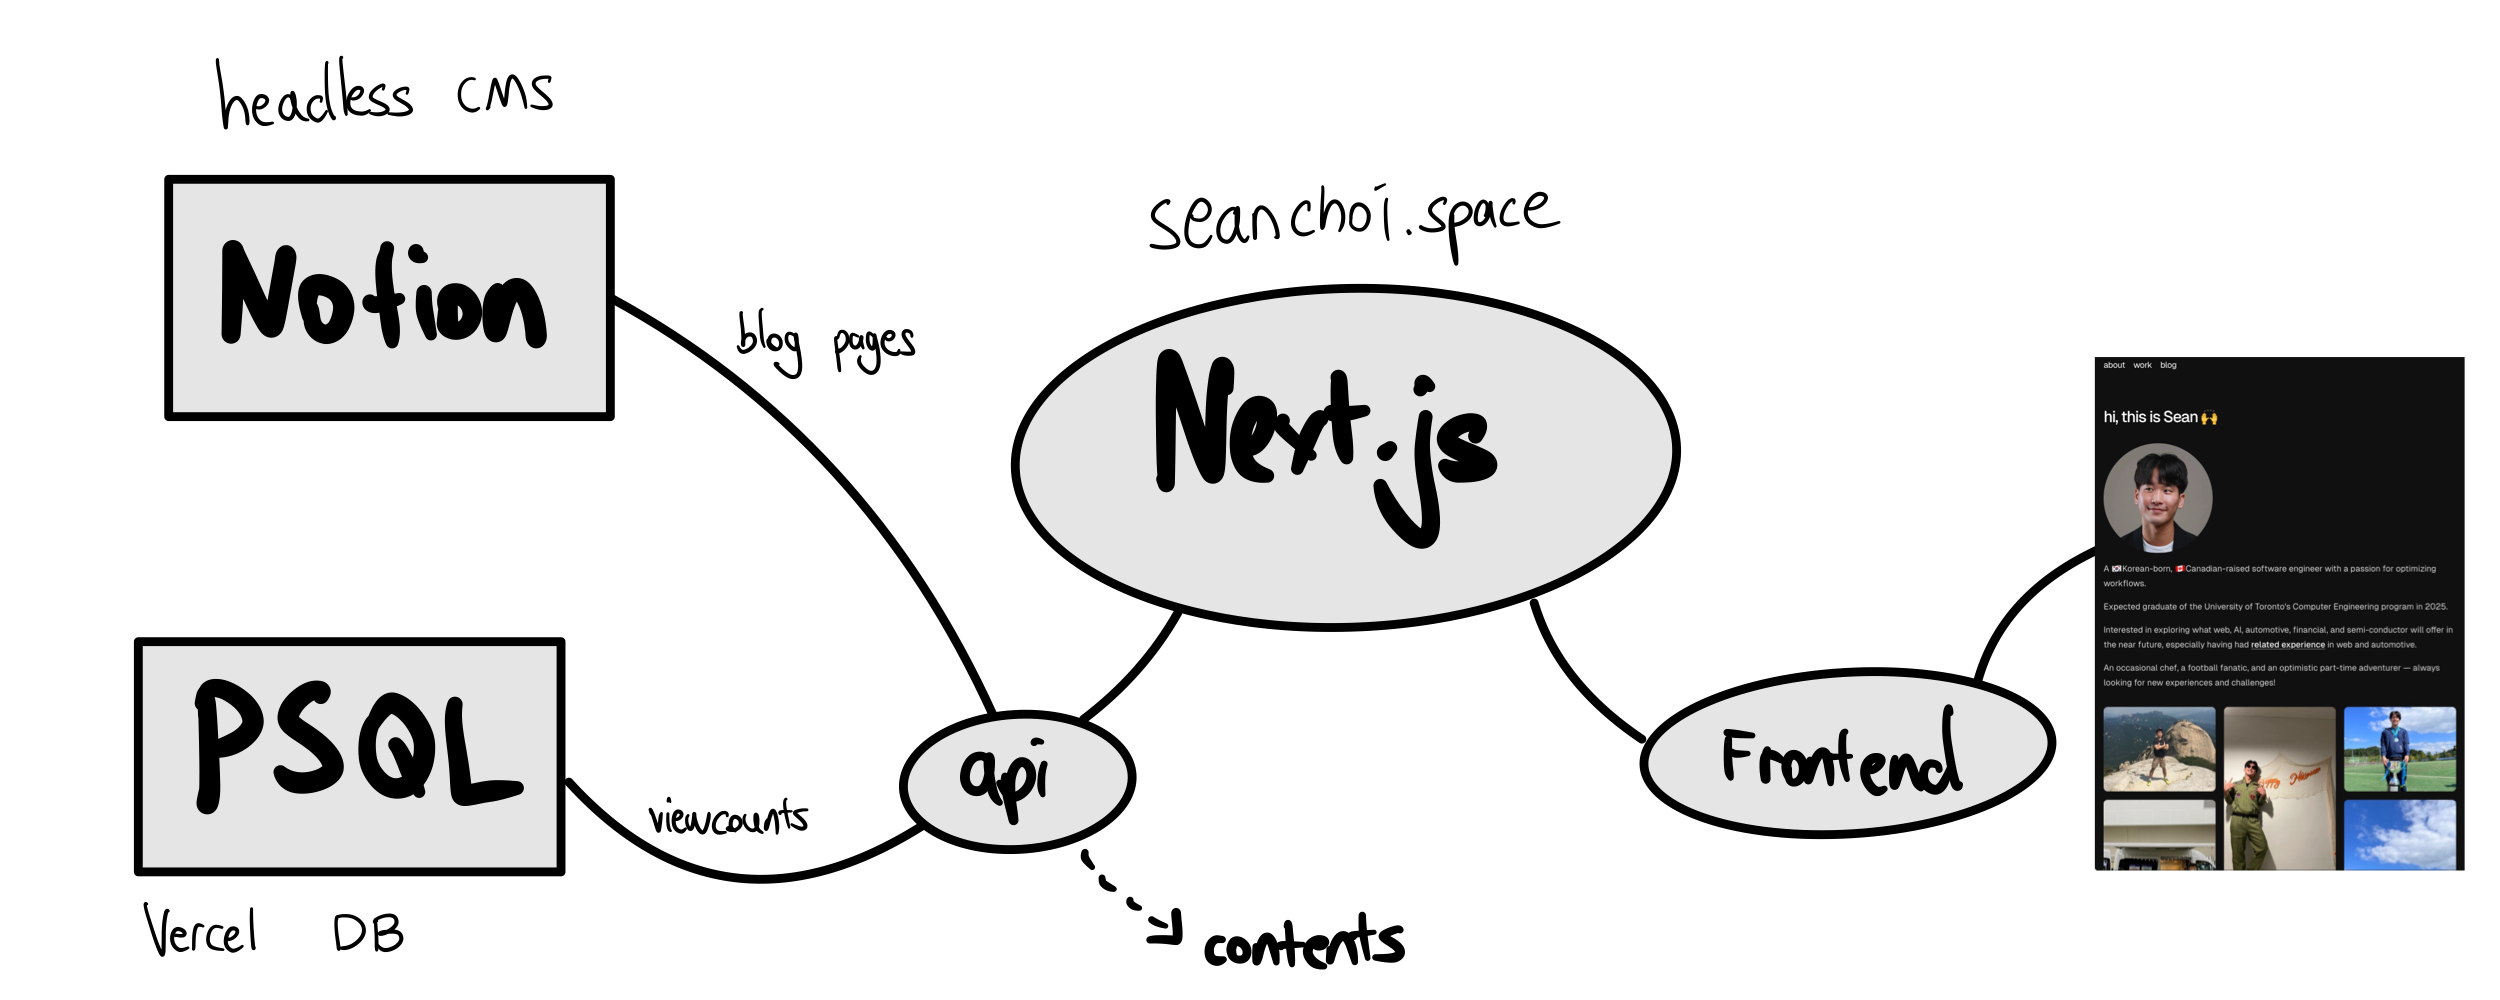 headless cms
Notion
blog pages
seanchoi.space
Next.js
PSQL
Vercel DB
viewcounts
api
contents
Frontend
about work blog
hi, this is Sean 🙌
A 🇰🇷Korean-born, 🇨🇦Canadian-raised software engineer with a passion for optimizing
workflows.
Expected graduate of the University of Toronto's Computer Engineering program in 2025.
Interested in exploring what web, AI, automotive, financial, and semi-conductor will offer in
the near future, especially having had related experience in web and automotive.
An occasional chef, a football fanatic, and an optimistic part-time adventurer — always
looking for new experiences and challenges!